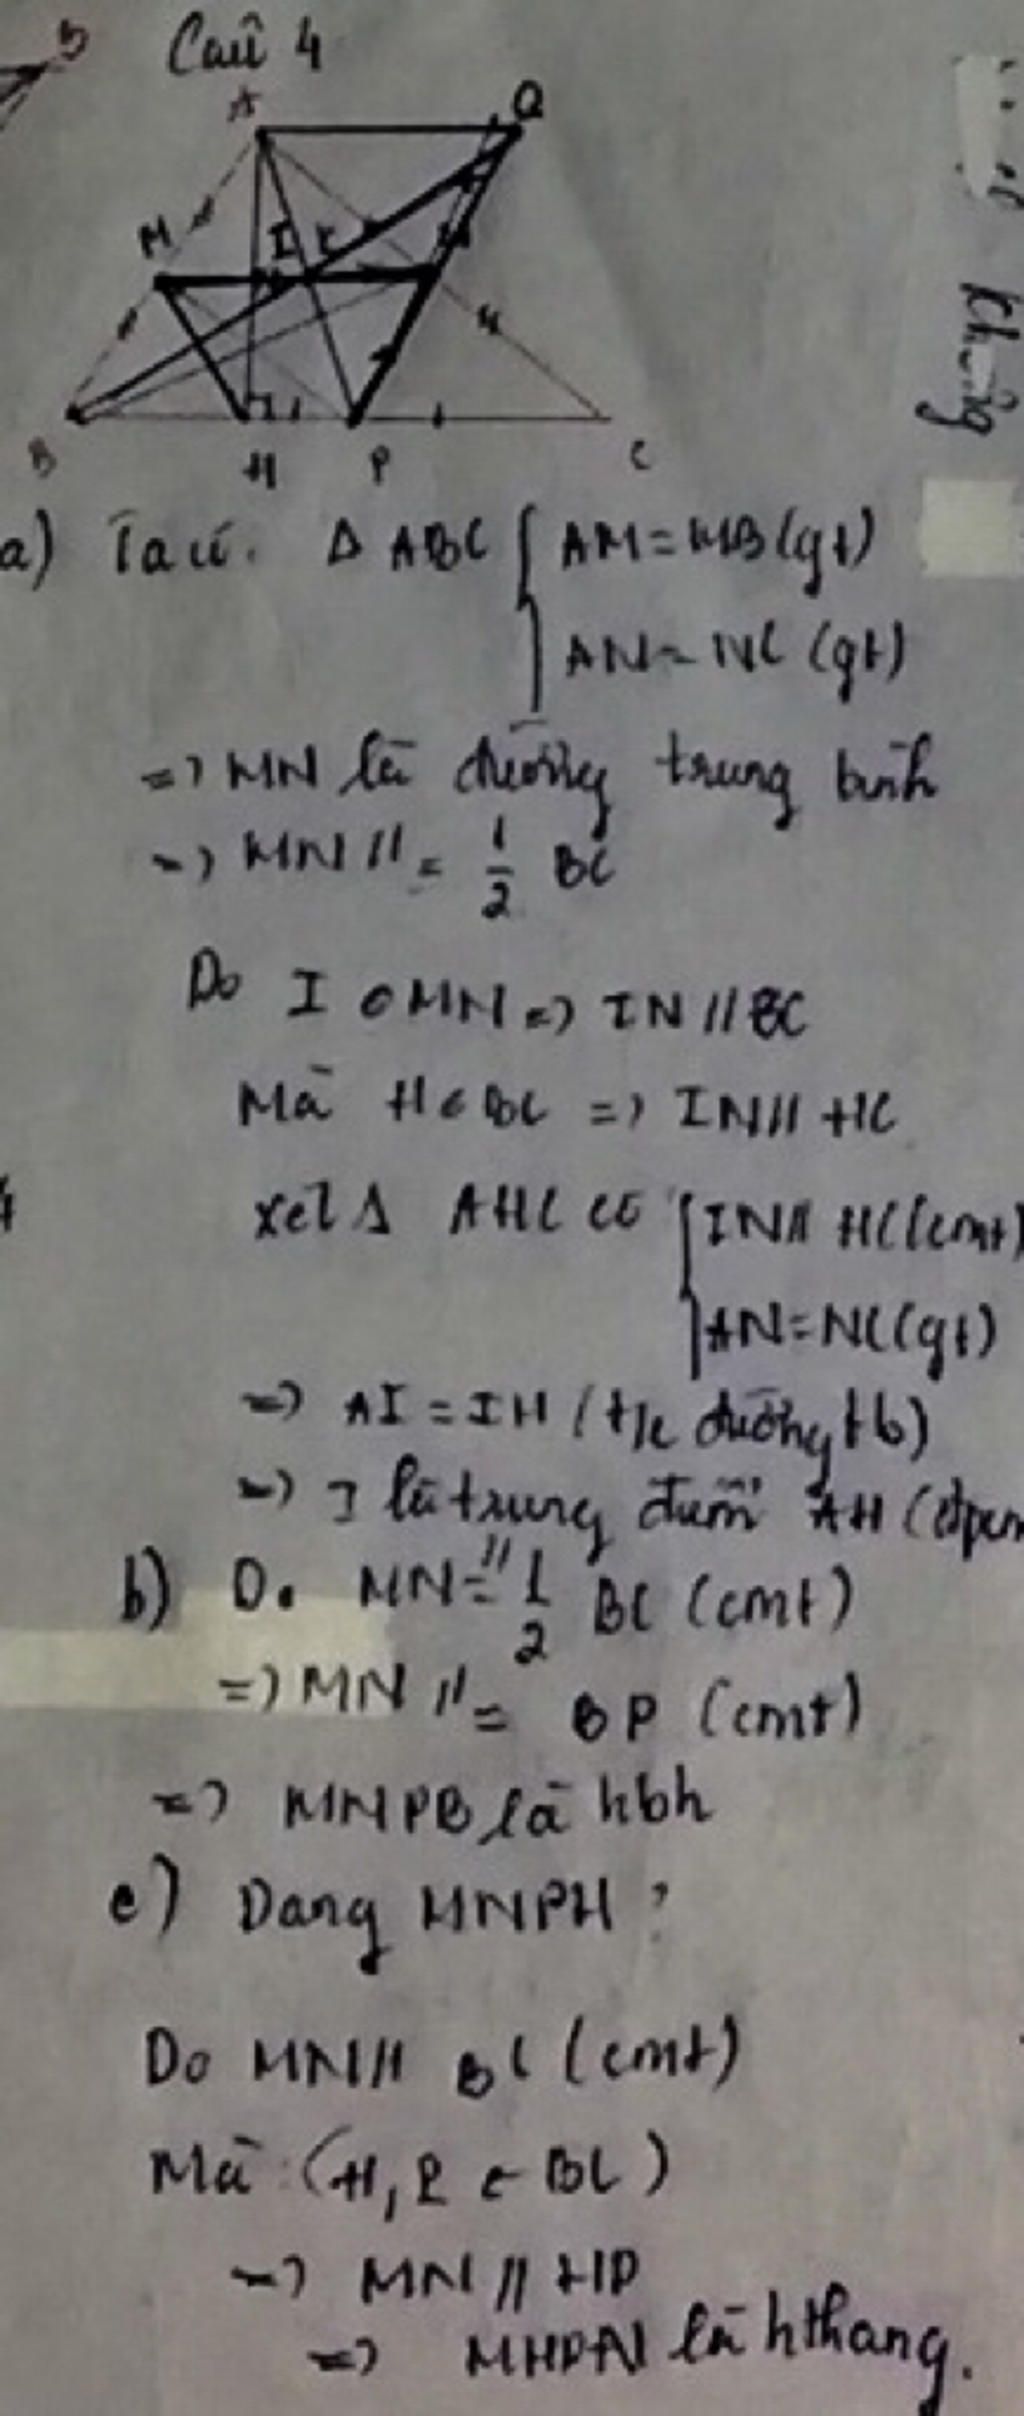 Câu 4
A
Q
M
I
K
B
H
P
C
không
a) Ta có: Δ ABC { AM = MB (gt)
AN = NC (gt)
=> MN là đường trung bình
=> MN // = 1/2 BC
Do I ∈ MN => IN // BC
Mà H ∈ BC => IN // HC
xét Δ AHC có { IN // HC (cmt)
AN = NC (gt)
=> AI = IH (t/c đường tb)
=> I là trung điểm AH (đpcm
b) Do MN // = 1/2 BC (cmt)
=> MN // = BP (cmt)
=> MNPB là hbh
c) Dạng MNPH ?
Do MN // BC (cmt)
Mà (H, P ∈ BC)
=> MN // HP
=> MHPN là hthang.